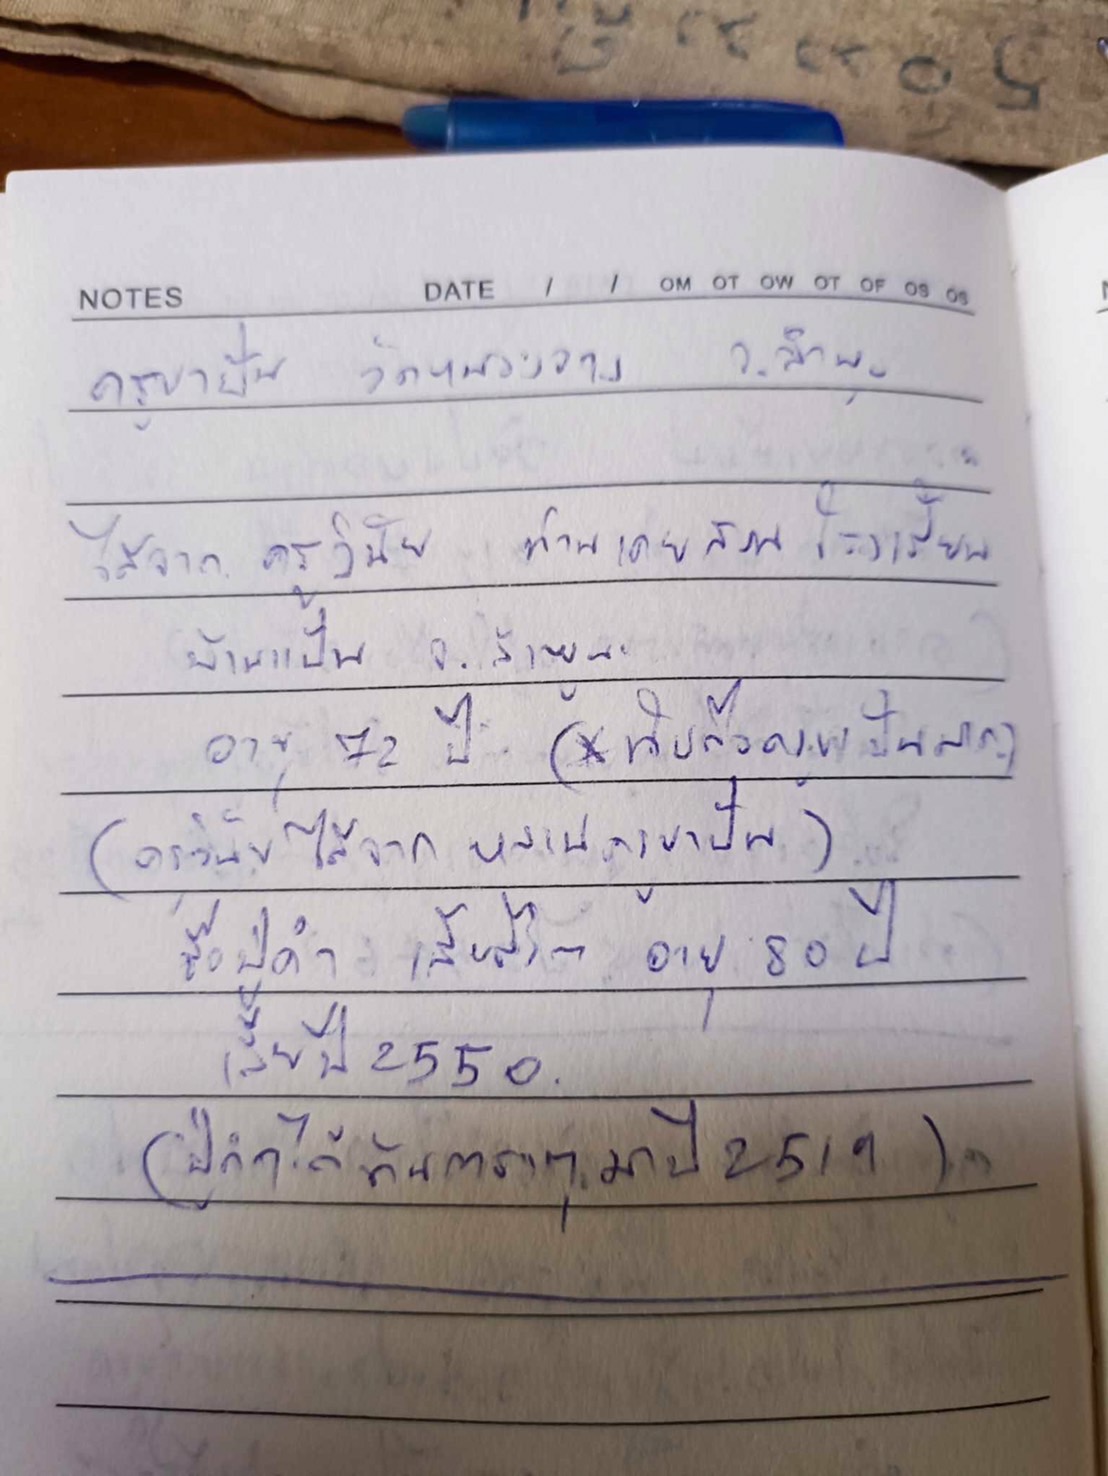 NOTES DATE / / OM OT OW OT OF OS OS
ครูบาปั๋น วัดหนองวาง จ.ลำพูน
ได้จาก ครูวินัย ท่านเคยสอนโรงเรียน
บ้านแป้น จ.ลำพูน
อายุ 72 ปี
(ครูวินัย ได้จาก หลานครูบาปั๋น)
ชื่อปู่คำ เสียชีวิต อายุ 80 ปี
เสียปี 2550.
(ปู่คำได้ มาปี 2519)